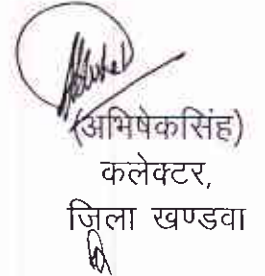 (अभिषेकसिंह)
कलेक्टर,
जिला खण्डवा